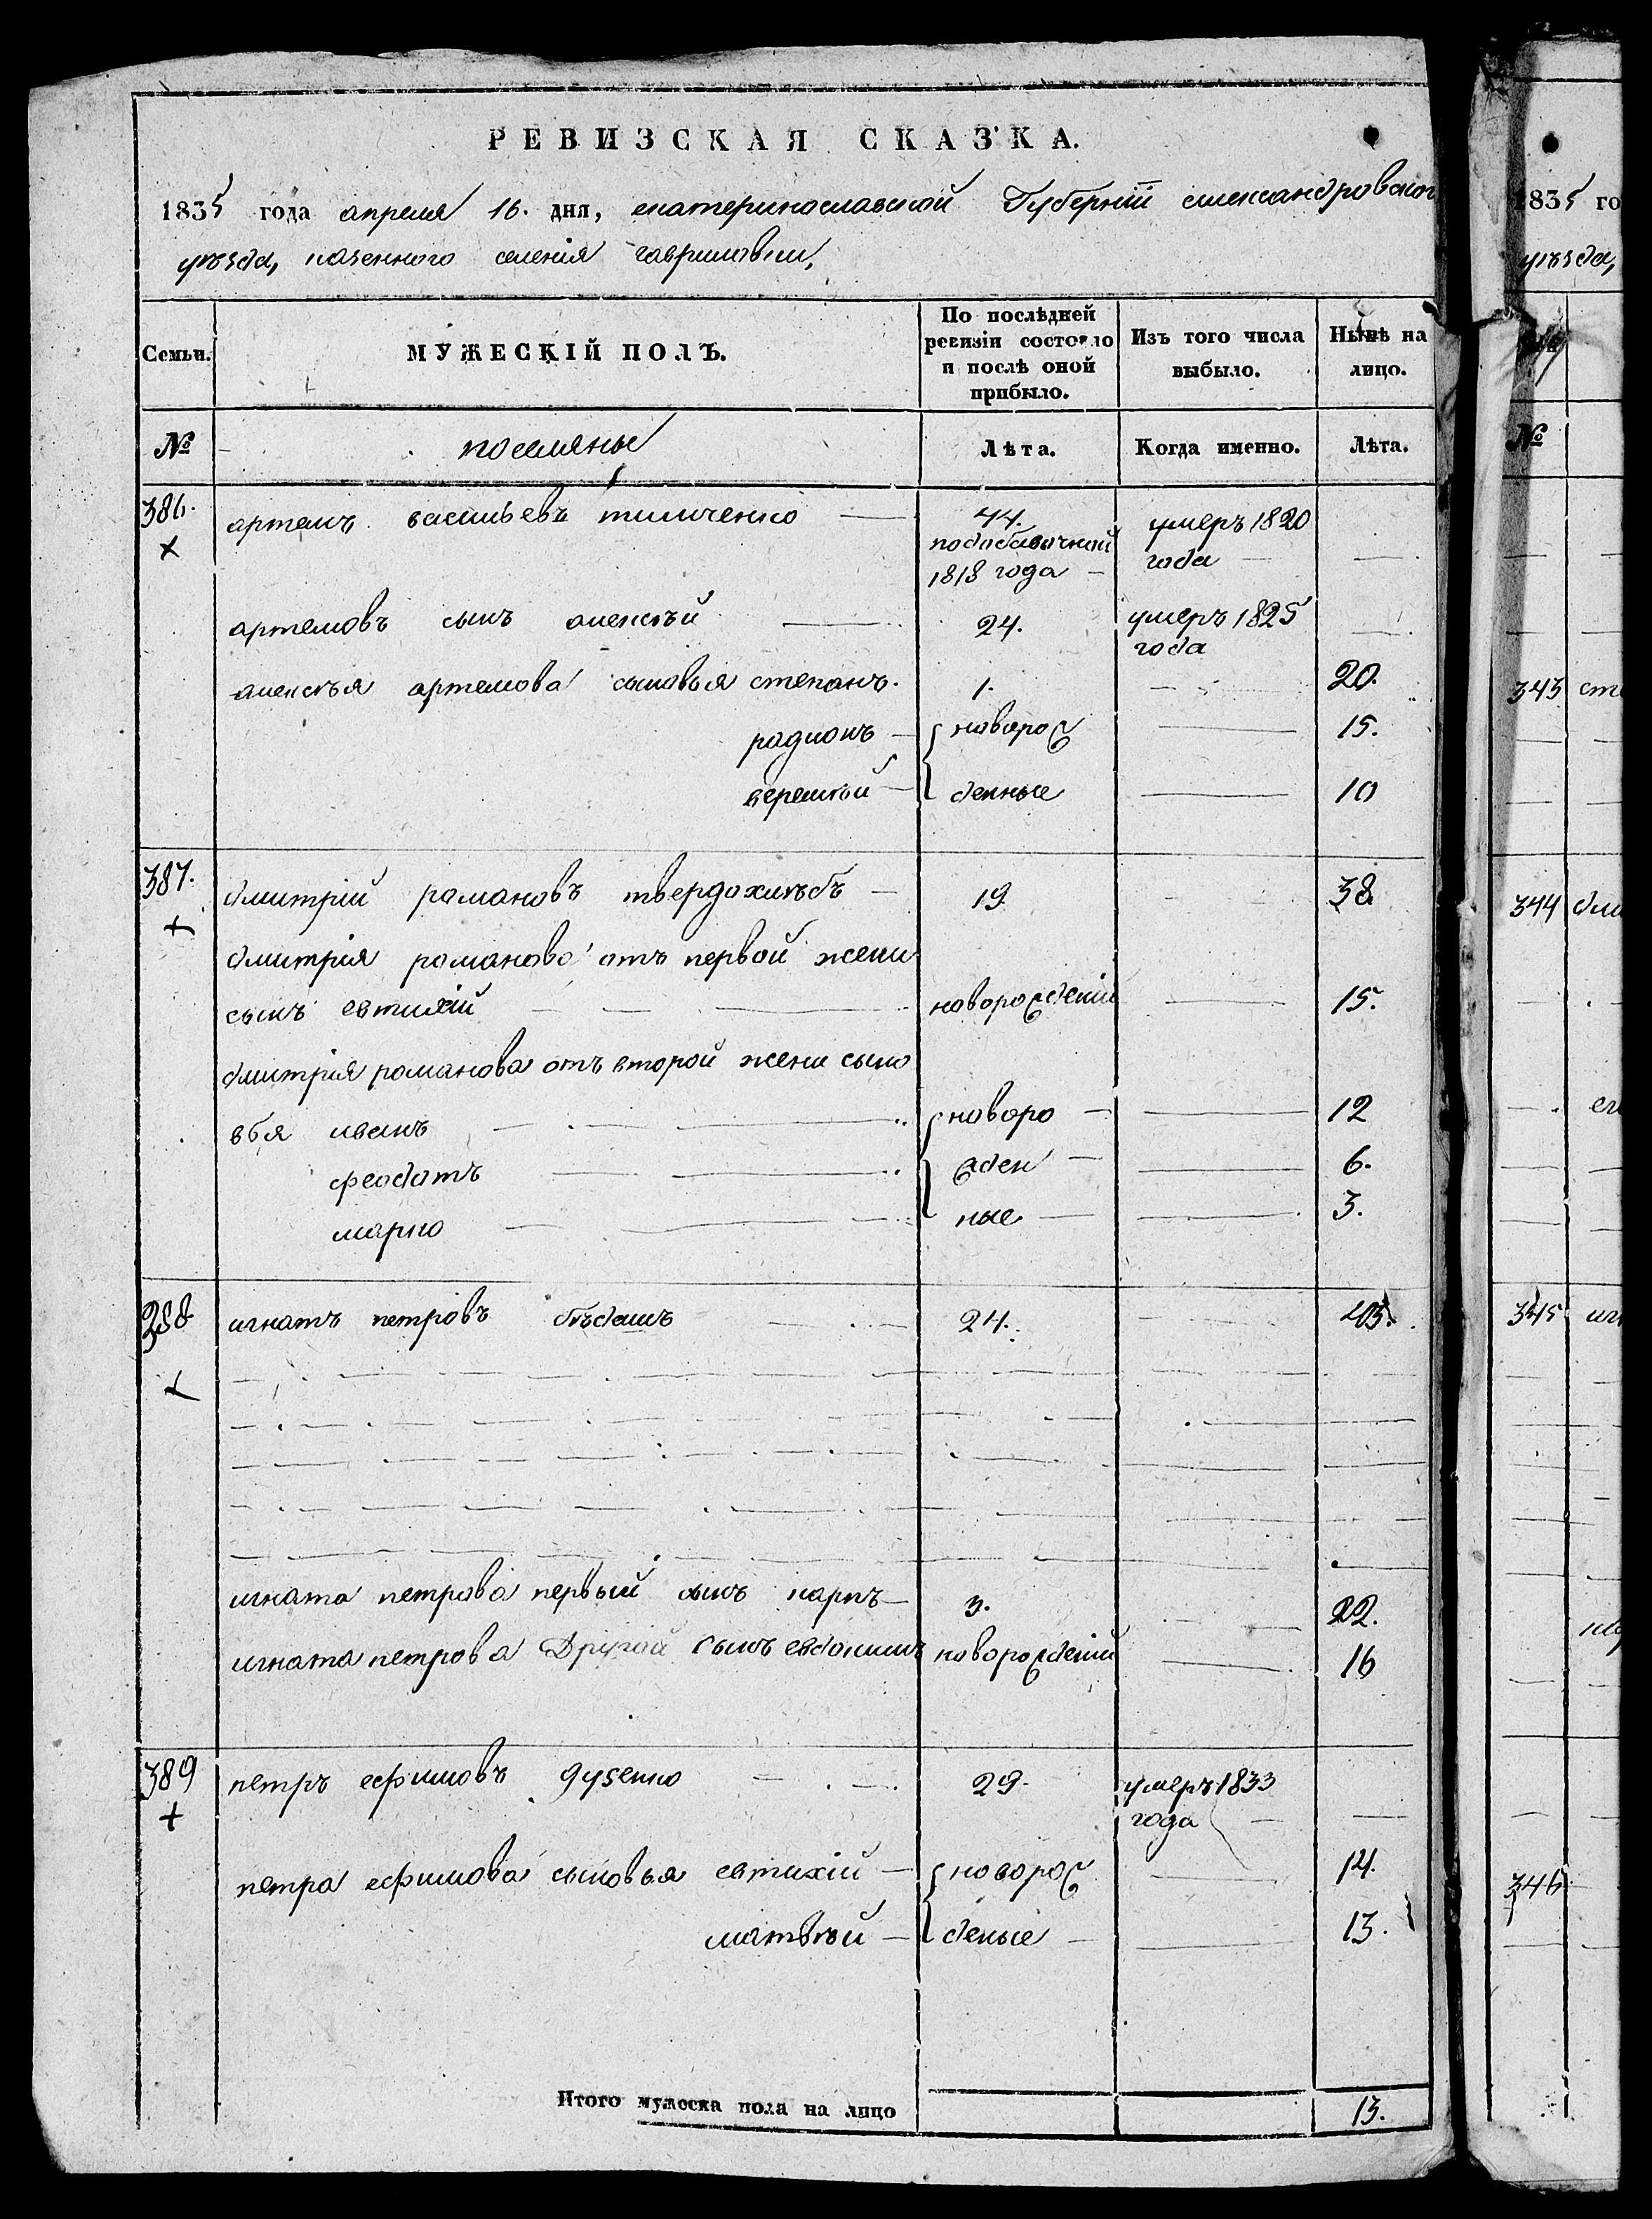 РЕВИЗСКАЯ СКАЗКА.
1835 года апреля 16. дня, екатеринославской Губернїи александровского
уѣзда, казенного селенія гавриловки,
Семьи.
МУЖЕСКІЙ ПОЛЪ.
По послѣдней ревизіи состояло и послѣ оной прибыло.
Изъ того числа выбыло.
Нынѣ на лицо.
№ поселяне Лѣта. Когда именно. Лѣта.
386. артемъ васильевъ тимченко 44. умеръ 1820
подобавочной года
1818 года
артемовъ сынъ алексѣй 24. умеръ 1825
года
алексѣя артемова сыновья степанъ. 1. 20.
радионъ новорож 15.
еремѣй денные 10
387. дмитрій романовъ твердохлѣбъ 19 38
дмитрія романова отъ первой жени
сынъ евтихій новорожденій 15.
дмитрія романова отъ второй жени сыно
вья иванъ новоро 12
феодотъ жден 6.
марко ные 3.
388 игнатъ петровъ 24. 43.
игната петрова первый сынъ карпъ 3. 22.
игната петрова Другой сынъ евдокимъ новорожденій 16
389 петръ ефимовъ дузенко 29. умеръ 1833
года
петра ефимова сыновья евтихій новорож 14.
матвѣй деные 13.
Итого мужеска пола на лицо 13.
1835 го
уѣзда,
№
343 сте
344 дми
345 игн
346